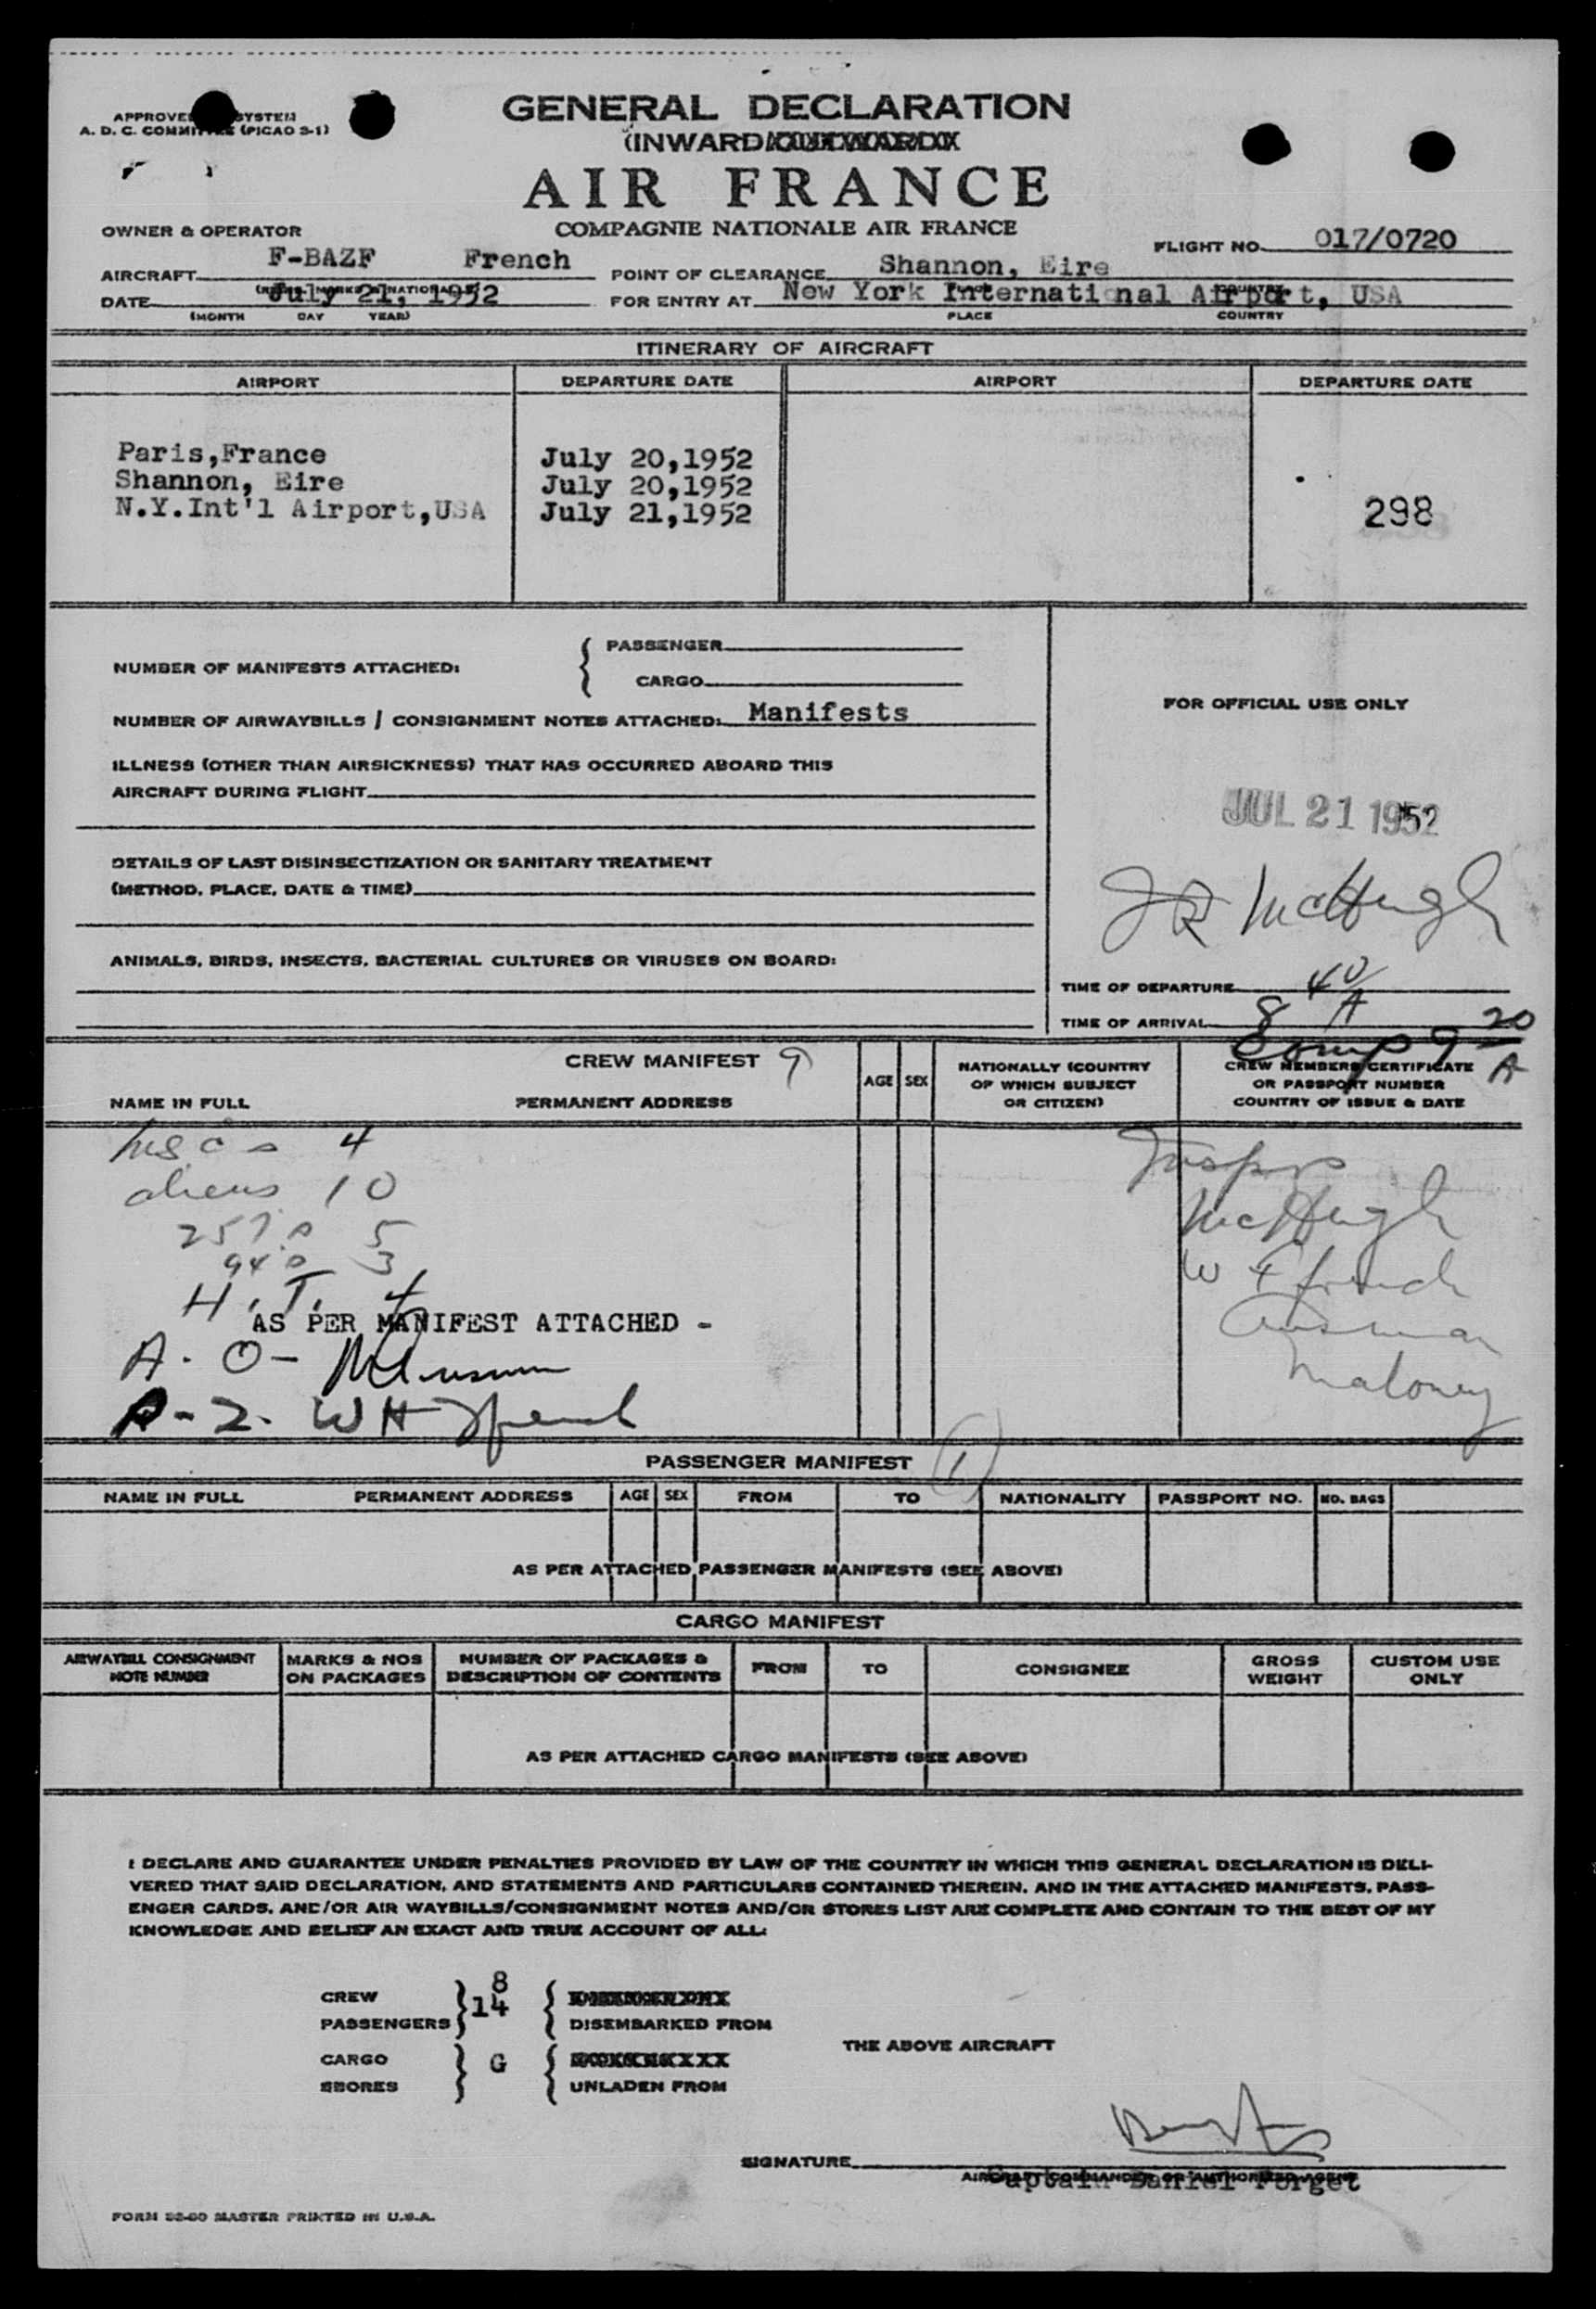 GENERAL DECLARATION
APPROVED SYSTEM
A. D. C. COMMITTEE (PICAO 2-1)
(INWARD/
AIR FRANCE
COMPAGNIE NATIONALE AIR FRANCE
OWNER & OPERATOR
FLIGHT NO. 017/0720
AIRCRAFT F-BAZF French POINT OF CLEARANCE Shannon, Eire
DATE July 21, 1952 FOR ENTRY AT New York International Airport, USA
(MONTH DAY YEAR) PLACE COUNTRY
ITINERARY OF AIRCRAFT
AIRPORT DEPARTURE DATE AIRPORT DEPARTURE DATE
Paris,France July 20,1952
Shannon, Eire July 20,1952
N.Y.Int'l Airport,USA July 21,1952 298
PASSENGER
NUMBER OF MANIFESTS ATTACHED:
CARGO
FOR OFFICIAL USE ONLY
NUMBER OF AIRWAYBILLS / CONSIGNMENT NOTES ATTACHED: Manifests
ILLNESS (OTHER THAN AIRSICKNESS) THAT HAS OCCURRED ABOARD THIS
AIRCRAFT DURING FLIGHT
JUL 21 1952
DETAILS OF LAST DISINSECTIZATION OR SANITARY TREATMENT
(METHOD, PLACE, DATE & TIME)
JR McHugh
ANIMALS, BIRDS, INSECTS, BACTERIAL CULTURES OR VIRUSES ON BOARD:
TIME OF DEPARTURE
TIME OF ARRIVAL 8 40 A
Comp 9 20 A
CREW MANIFEST 9
NAME IN FULL PERMANENT ADDRESS AGE SEX
NATIONALLY (COUNTRY
OF WHICH SUBJECT
OR CITIZEN)
CREW MEMBERS CERTIFICATE
OR PASSPORT NUMBER
COUNTRY OF ISSUE & DATE
4
aliens 10
257's 5
94's 3
H. T. 4
AS PER MANIFEST ATTACHED -
A-O-
A-2- WH
Insprs
McHugh
Maloney
PASSENGER MANIFEST 1
NAME IN FULL PERMANENT ADDRESS AGE SEX FROM TO NATIONALITY PASSPORT NO. NO. BAGS
AS PER ATTACHED PASSENGER MANIFESTS (SEE ABOVE)
CARGO MANIFEST
AIRWAYBILL CONSIGNMENT
NOTE NUMBER
MARKS & NOS
ON PACKAGES
NUMBER OF PACKAGES &
DESCRIPTION OF CONTENTS
FROM TO CONSIGNEE
GROSS
WEIGHT
CUSTOM USE
ONLY
AS PER ATTACHED CARGO MANIFESTS (SEE ABOVE)
I DECLARE AND GUARANTEE UNDER PENALTIES PROVIDED BY LAW OF THE COUNTRY IN WHICH THIS GENERAL DECLARATION IS DELI-
VERED THAT SAID DECLARATION, AND STATEMENTS AND PARTICULARS CONTAINED THEREIN, AND IN THE ATTACHED MANIFESTS, PASS-
ENGER CARDS, AND/OR AIR WAYBILLS/CONSIGNMENT NOTES AND/OR STORES LIST ARE COMPLETE AND CONTAIN TO THE BEST OF MY
KNOWLEDGE AND BELIEF AN EXACT AND TRUE ACCOUNT OF ALL:
CREW 8
PASSENGERS 14 DISEMBARKED FROM
THE ABOVE AIRCRAFT
CARGO G
STORES UNLADEN FROM
SIGNATURE
AIRCRAFT COMMANDER OR AUTHORIZED AGENT
Captain Daniel Forget
FORM 32-60 MASTER PRINTED IN U.S.A.